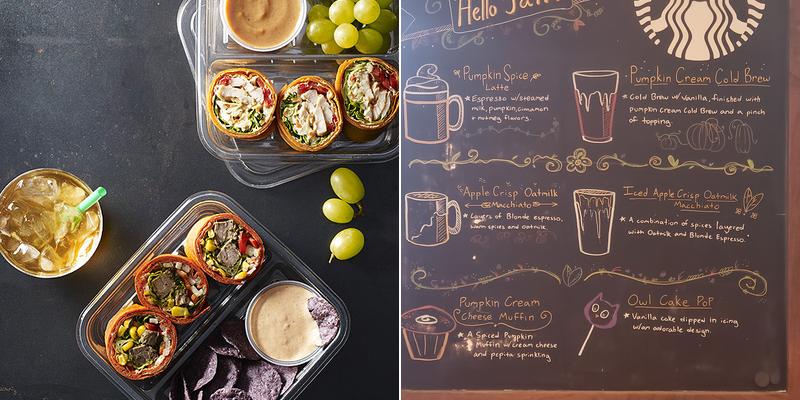 Hello
Pumpkin Spice
Latte
Espresso w/steamed
milk, pumpkin, cinnamon
+ nutmeg flavors.
Pumpkin Cream Cold Brew
Cold Brew w/ Vanilla, finished with
pumpkin cream Cold Brew and a pinch
of topping.
Apple Crisp Oatmilk
Macchiato
Layers of Blonde espresso,
warm spices and oatmilk.
Iced Apple Crisp Oatmilk
Macchiato
A combination of spices layered
with Oatmilk and Blonde Espresso.
Pumpkin Cream
Cheese Muffin
A Spiced Pumpkin
Muffin w/ cream cheese
and pepita sprinkling
Owl Cake Pop
Vanilla cake dipped in icing
w/an adorable design.